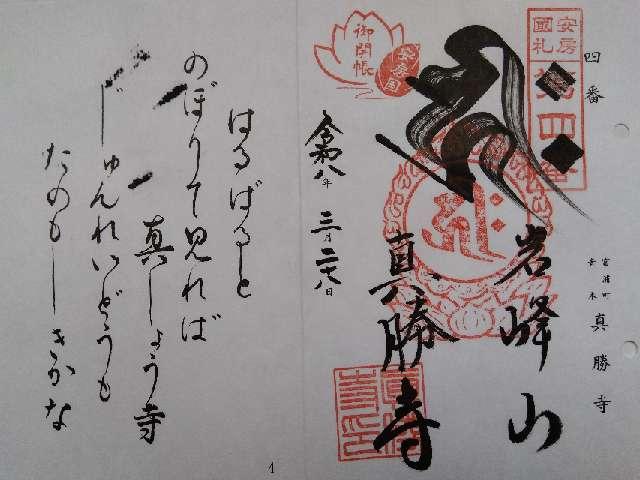 安房
國札
第四番
四番
富浦町
青木
真勝寺
岩峰山
真勝寺
御開帳
安房国
令和八年 三月二十八日
はるばると
のぼりて見れば
真しょう寺
じゅんれいどうも
たのもしきかな
1